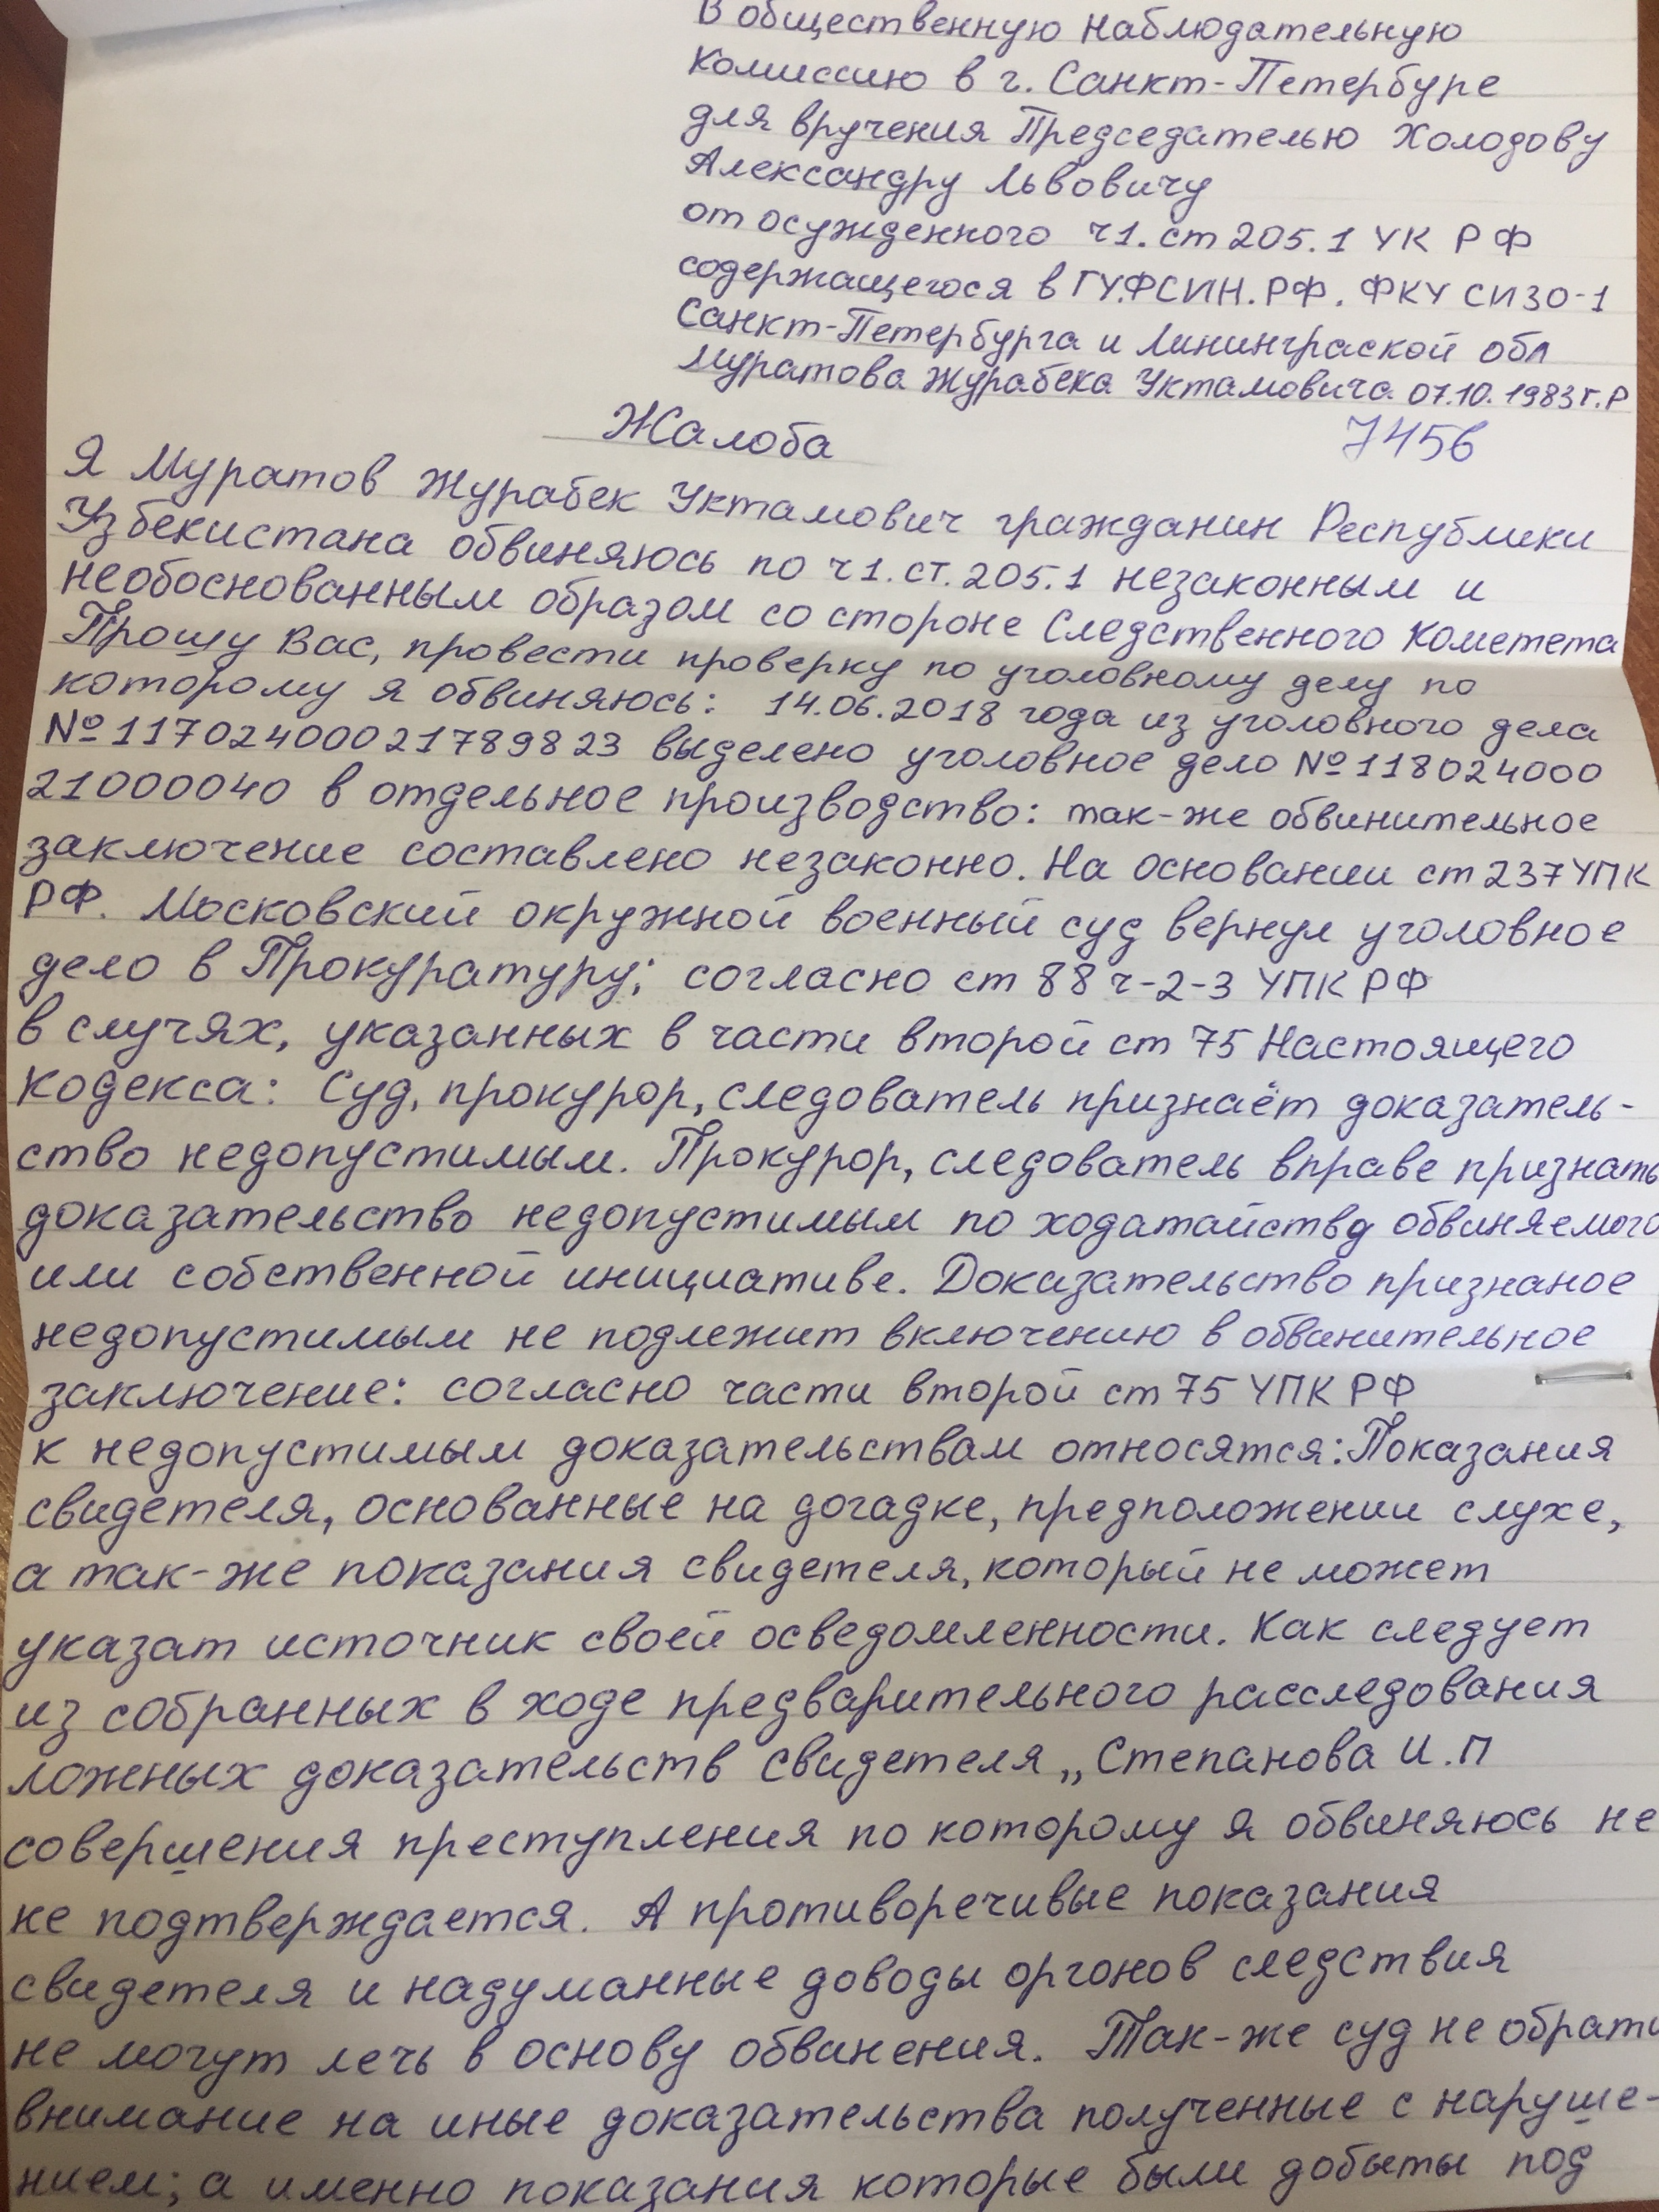 В общественную наблюдательную
комиссию в г. Санкт-Петербурге
для вручения Председателью Холодову
Александру Львовичу
от осужденного ч1. ст 205.1 УК РФ
содержащегося в ГУ.ФСИН.РФ. ФКУ СИЗО-1
Санкт-Петербурга и Лининграской обл
Муратова Журабека Уктамовича 07.10.1983г.р
Жалоба
7456
Я Муратов Журабек Уктамович гражданин Республики
Узбекистана обвиняюсь по ч1. ст. 205.1 незаконным и
необоснованным образом со стороне Следственного Кометета
Прошу Вас, провести проверку по уголовному делу по
которому я обвиняюсь: 14.06.2018 года из уголовного дела
№ 11702400021789823 выделено уголовное дело № 118024000
21000040 в отдельное производство: так-же обвинительное
заключение составлено незаконно. На основании ст 237 УПК
РФ. Московский окружной военный суд вернул уголовное
дело в Прокуратуру; согласно ст 88 ч-2-3 УПК РФ
в случях, указанных в части второй ст 75 Настоящего
кодекса: Суд, прокурор, следователь признаёт доказатель-
ство недопустимым. Прокурор, следователь вправе признать
доказательство недопустимым по ходатайству обвиняемого
или собственной инициативе. Доказательство признаное
недопустимым не подлежит включению в обвинительное
заключение: согласно части второй ст 75 УПК РФ
к недопустимым доказательствам относятся: Показания
свидетеля, основанные на догадке, предположении слухе,
а так-же показания свидетеля, который не может
указат источник своей осведомленности. Как следует
из собранных в ходе предварительного расследования
ложных доказательств свидетеля „Степанова И.П
совершения преступления по которому я обвиняюсь не
не подтверждается. А противоречивые показания
свидетеля и надуманные доводы оргонов следствия
не могут лечь в основу обвинения. Так-же суд не обрати
внимание на иные доказательства полученные с наруше-
нием; а именно показания которые были добыты под